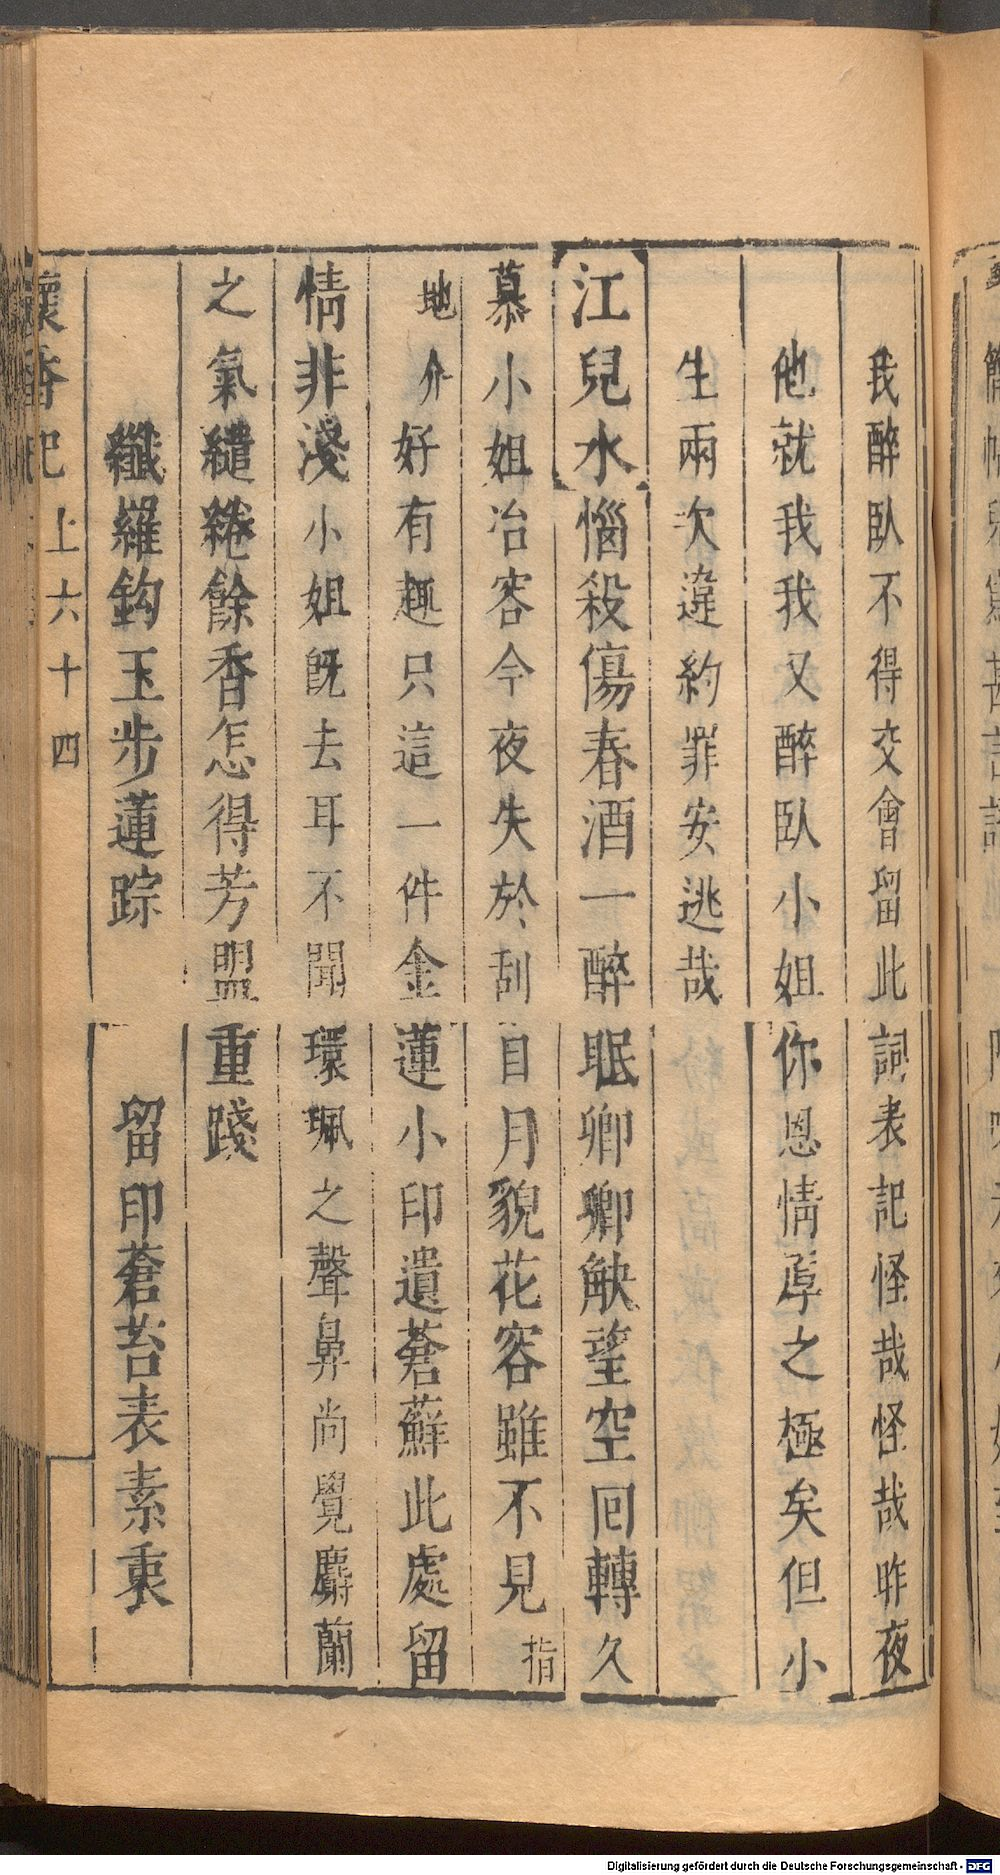 我醉臥不得交會留此詞表記怪哉怪哉昨夜
他就我我又醉臥小姐你恩情厚之極矣但小
生兩次違約罪安逃哉
江兒水惱殺傷春酒一醉眠卿卿觖望空回轉久
慕小姐冶容今夜失於刮目月貌花容雖不見指
地介好有趣只這一件金蓮小印遺蒼蘚此處留
情非淺小姐旣去耳不聞環珮之聲鼻尚覺麝蘭
之氣繾綣餘香怎得芳盟重踐
纖羅鈎玉步蓮踪　留印蒼苔表素衷
懷香記上六十四
Digitalisierung gefördert durch die Deutsche Forschungsgemeinschaft - DFG